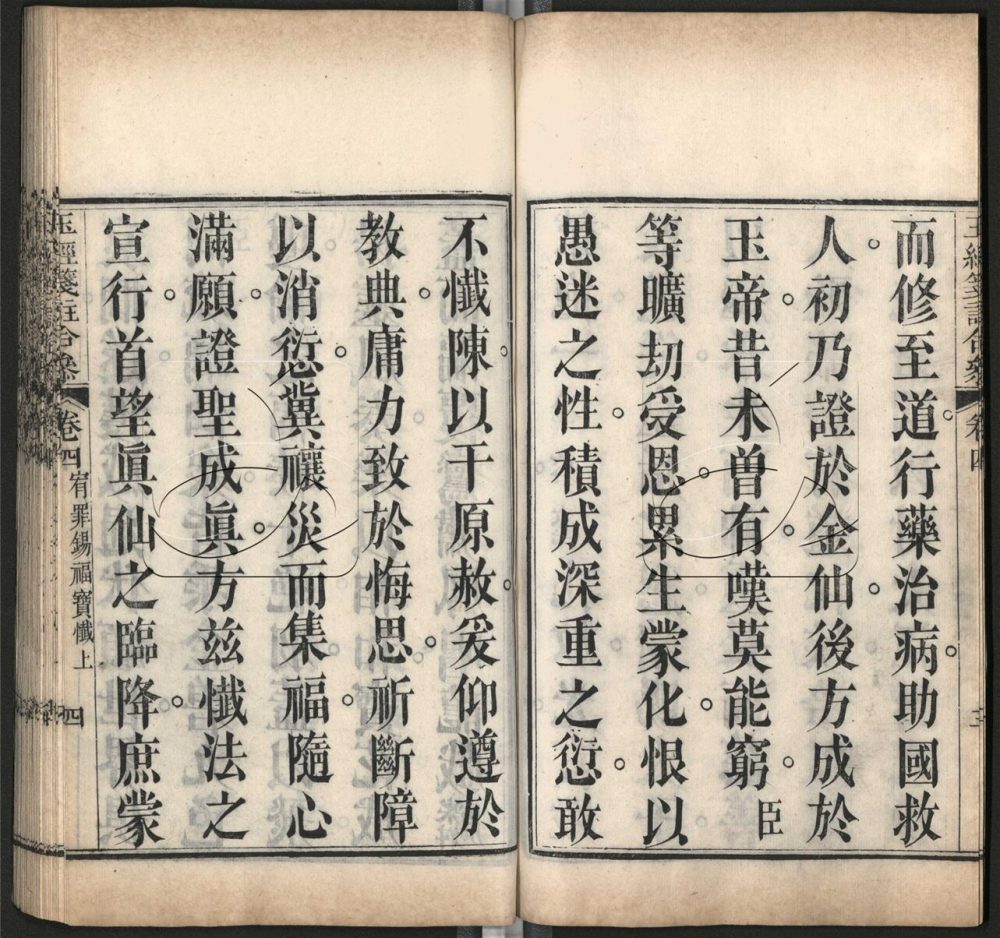 而修至道。行藥治病。助國救
人。初乃證於金仙。後方成於
玉帝。昔未曾有。嘆莫能窮。臣
等曠劫受恩。累生蒙化。恨以
愚迷之性。積成深重之愆。敢
不懺陳。以干原赦。爰仰遵於
教典。庸力致於悔思。祈斷障
以消愆。冀禳災而集福。隨心
滿願。證聖成眞。方兹懺法之
宣行。首望眞仙之臨降。庶蒙
玉經箋註合參
卷四
宥罪錫福寶懺上
四